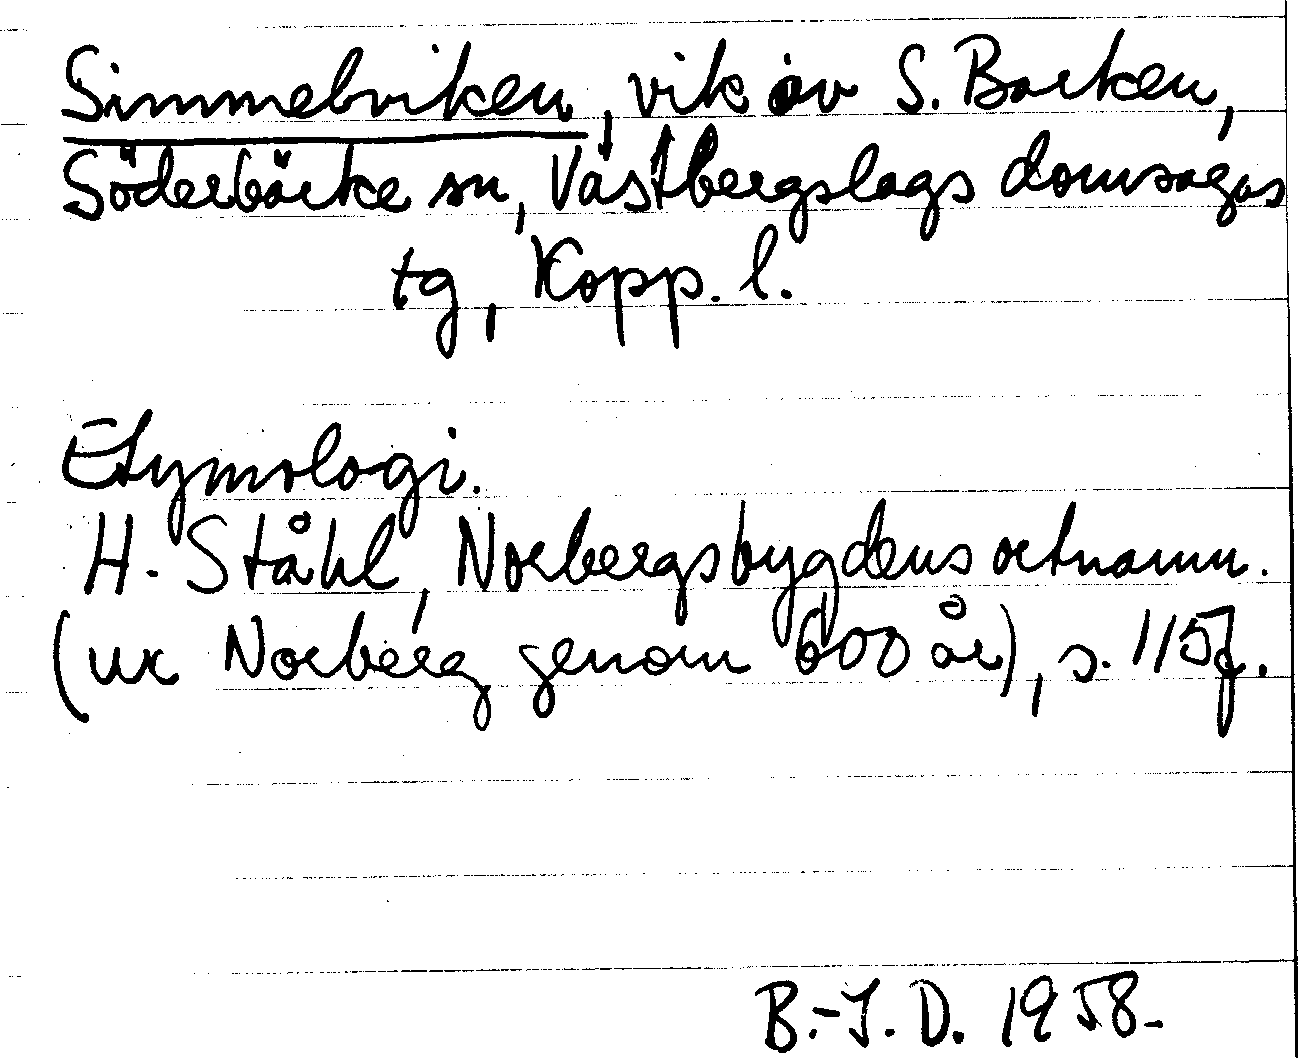 Simmelviken, vik av S. Barken,
Söderbärke sn, Västbergslags domsagas
tg, Kopp. l.
Etymologi.
H. Ståhl, Norbergsbygdens ortnamn.
(ur Norberg genom 600 år), s. 115f.
B.-J. D. 1958.